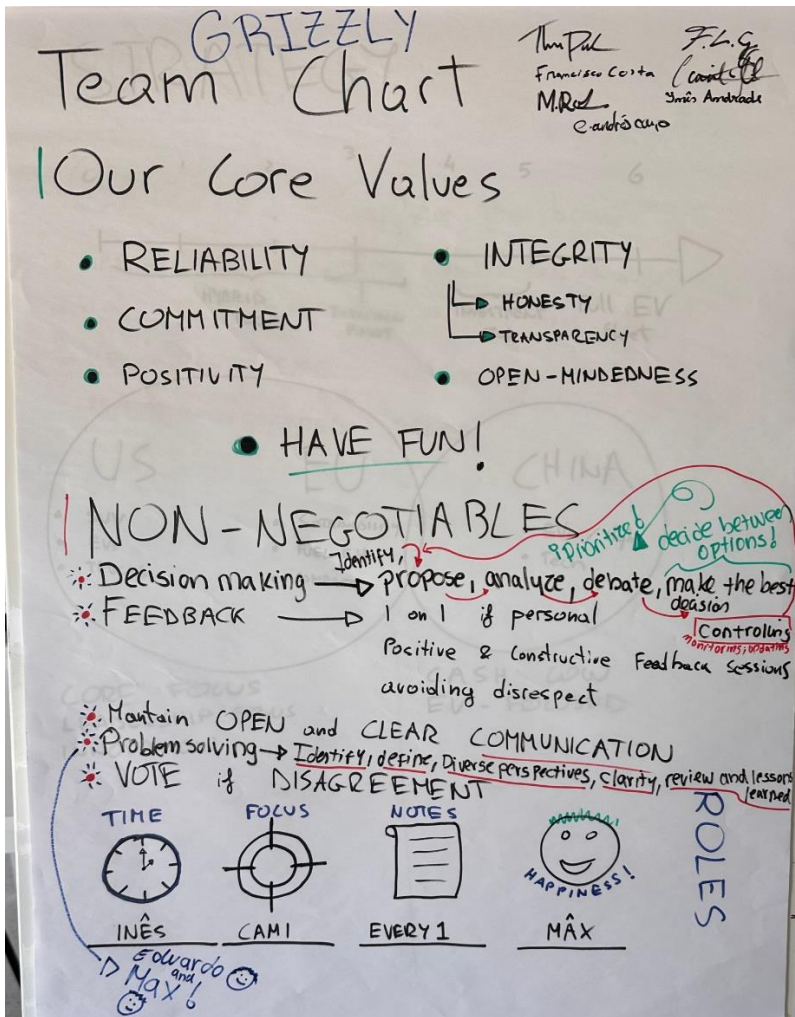 GRIZZLY
Team Chart
F.L.G
Francisco Costa
Inês Andrade
M.Rul
Our Core Values
• RELIABILITY
• COMMITMENT
• POSITIVITY
• INTEGRITY
HONESTY
TRANSPARENCY
• OPEN-MINDEDNESS
• HAVE FUN!
NON-NEGOTIABLES
Prioritize!
decide between options!
Identify,
Decision making → propose, analyze, debate, make the best
decision
Controlling
monitoring, updating
FEEDBACK → 1 on 1 if personal
Positive & Constructive Feedback sessions
avoiding disrespect
Mantain OPEN and CLEAR COMMUNICATION
Problem solving → Identify, define, Diverse perspectives, clarity, review and lessons
learned
VOTE if DISAGREEMENT
ROLES
TIME
FOCUS
NOTES
HAPPINESS!
INÊS
CAMI
EVERY 1
MÂX
Edwardo
and
Max!
US
EU
CHINA